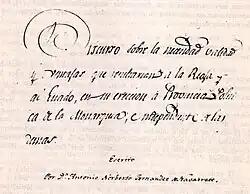 Discurso sobre la necesidad utilidad
y ventajas que vendrian a la Rioja y
al Estado, en su ereccion a Provincia
ca de la Monarquia, e independiente a las
demas.
Escrito
Por Dn. Antonio Norberto Fernandez de Navarrete.